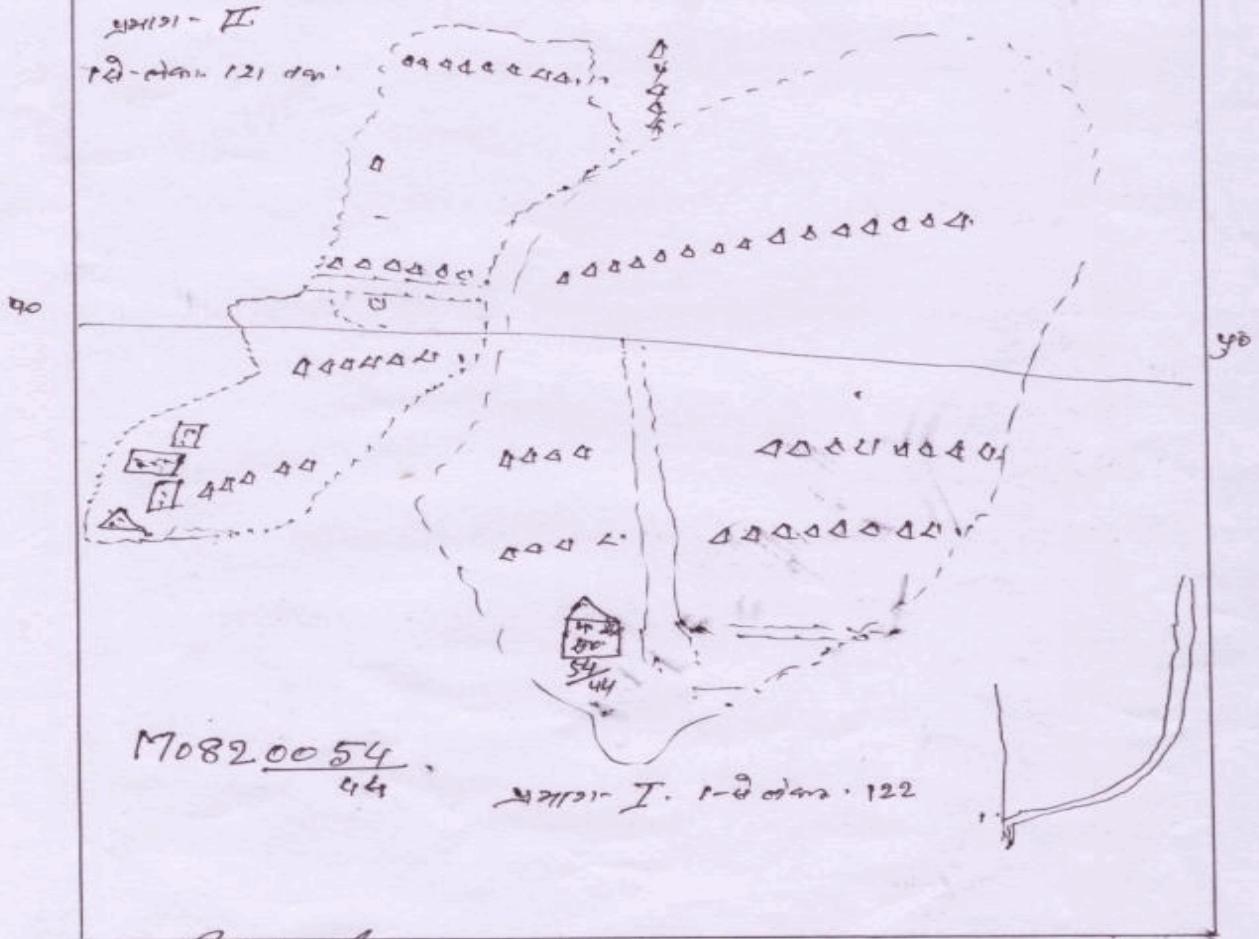 प्रभाग - II
1 से लेकर 121 तक
प०
पू०
54/44
M0820054
44
प्रभाग - I. 1 से लेकर 122